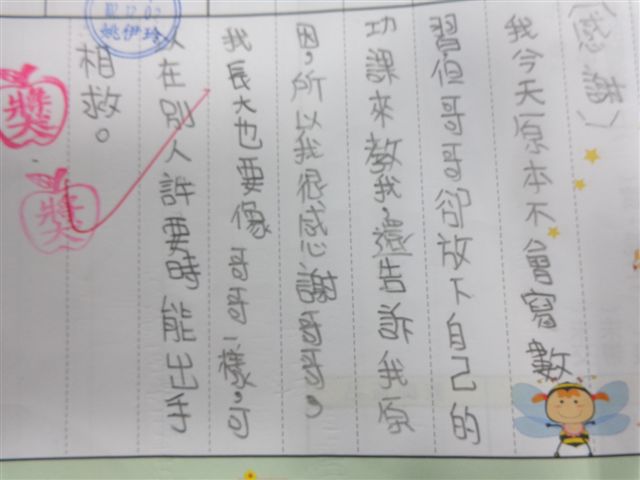 （感謝）
我今天原本不會寫數
習但哥哥卻放下自己的
功課來教我，還告訴我原
因，所以我很感謝哥哥。
我長大也要像哥哥一樣，可
以在別人許要時能出手
相救。
獎
獎